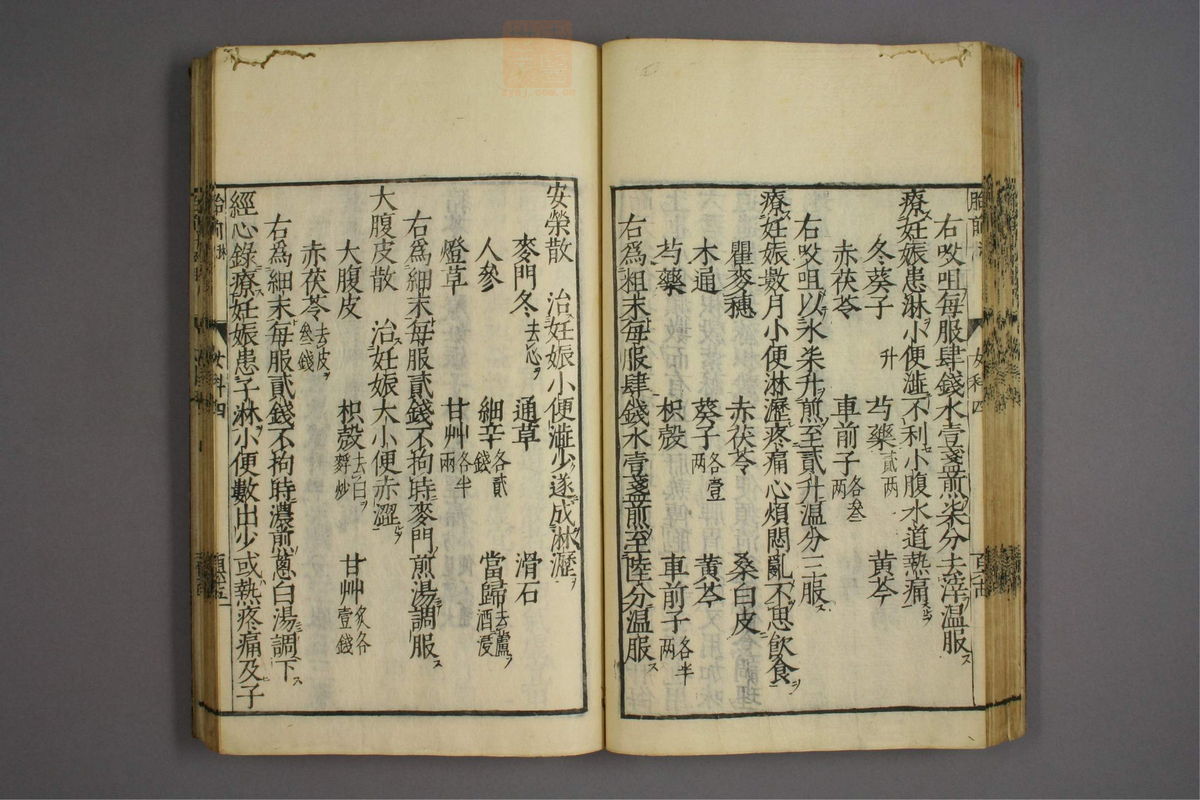 右㕮咀每服肆錢水壹盞煎柒分去滓溫服
療妊娠患淋小便澁不利小腹水道熱痛
冬葵子 升 芍藥 貳两 黄芩
赤茯苓 車前子 各叁两
右㕮咀以水柒升煎至貳升溫分三服
療妊娠數月小便淋瀝疼痛心煩悶亂不思飲食
瞿麥穗 赤茯苓 桑白皮
木通 葵子 各壹两 黄芩
芍藥 枳殼 車前子 各半两
右爲粗末每服肆錢水壹盞煎至陸分溫服
安榮散 治妊娠小便澁少遂成淋瀝
麥門冬 去心 通草 滑石
人參 細辛 各貳錢 當歸 去蘆酒浸
燈草 甘艸 各半兩
右爲細末每服貳錢不拘時麥門煎湯調服
大腹皮散 治妊娠大小便赤澀
大腹皮 枳殼 去白麩炒 甘艸 炙各壹錢
赤茯苓 去皮叁錢
右爲細末每服貳錢不拘時濃煎蔥白湯調下
經心錄療妊娠患子淋小便數出少或熱疼痛及子
女科四
女科四